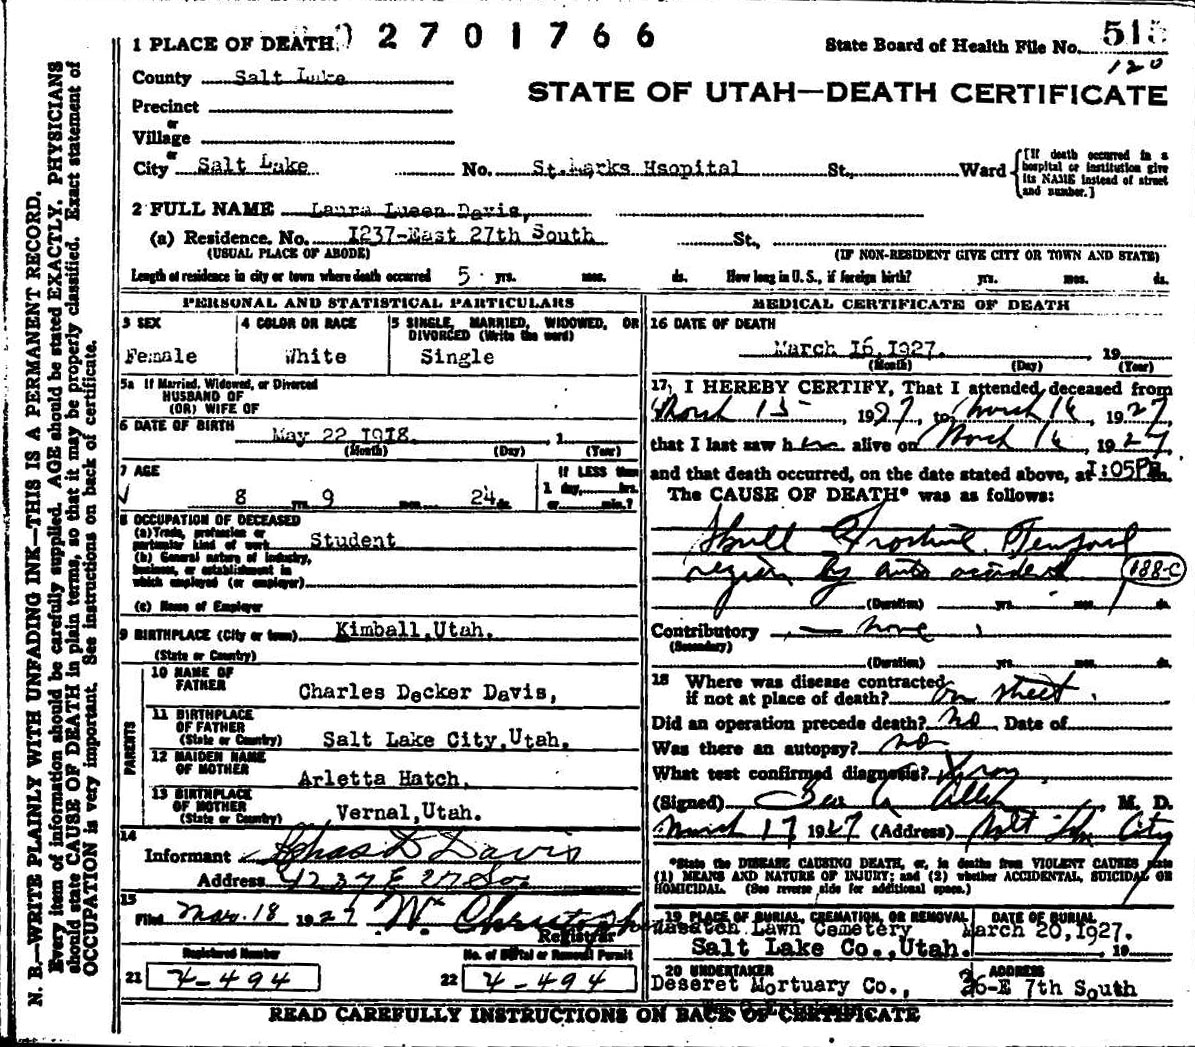 1 PLACE OF DEATH 2 7 0 1 7 6 6
State Board of Health File No. 515
120
County Salt Lake
STATE OF UTAH—DEATH CERTIFICATE
Precinct
or
Village
or
City Salt Lake No. St.Marks Hsopital St., Ward {[If death occurred in a hospital or institution give its NAME instead of street and number.]
2 FULL NAME Laura Lueen Davis,
(a) Residence. No. I237-East 27th South St.,
(USUAL PLACE OF ABODE) (IF NON-RESIDENT GIVE CITY OR TOWN AND STATE)
Length of residence in city or town where death occurred 5 yrs. mos. ds. How long in U. S., if foreign birth? yrs. mos. ds.
PERSONAL AND STATISTICAL PARTICULARS
3 SEX
Female
4 COLOR OR RACE
White
5 SINGLE, MARRIED, WIDOWED, OR DIVORCED (Write the word)
Single
5a If Married, Widowed, or Divorced
HUSBAND OF
(OR) WIFE OF
6 DATE OF BIRTH May 22 1918. , 1
(Month) (Day) (Year)
7 AGE
8 yrs. 9 mos. 24 ds.
If LESS than
1 day, hrs.
or min.?
8 OCCUPATION OF DECEASED
(a) Trade, profession or
particular kind of work Student
(b) General nature of industry,
business, or establishment in
which employed (or employer)
(c) Name of Employer
9 BIRTHPLACE (City or town) Kimball,Utah.
(State or Country)
PARENTS
10 NAME OF
FATHER Charles Decker Davis,
11 BIRTHPLACE
OF FATHER
(State or Country) Salt Lake City,Utah.
12 MAIDEN NAME
OF MOTHER Arletta Hatch,
13 BIRTHPLACE
OF MOTHER
(State or Country) Vernal,Utah.
14
Informant Chas D Davis
Address 1237 E 27 So
15
Filed Mar. 18 1927 W.
Registrar
Registered Number
21 4-494
No. of Burial or Removal Permit
22 4-494
MEDICAL CERTIFICATE OF DEATH
16 DATE OF DEATH
March I6,I927. , 19
(Month) (Day) (Year)
17 I HEREBY CERTIFY, That I attended deceased from
March 15 1927, to March 16 1927
that I last saw her alive on March 16, 1927
and that death occurred, on the date stated above, at I:05P m.
The CAUSE OF DEATH* was as follows:
Skull Fracture Temporal
region by auto accident 188-C
(Duration) yrs. mos. 1 ds.
Contributory — none
(Secondary)
(Duration) yrs. mos. ds.
18 Where was disease contracted
if not at place of death? on street.
Did an operation precede death? no Date of
Was there an autopsy? no
What test confirmed diagnosis? Xray
(Signed) Allen M. D.
March 17 1927 (Address) Salt Lake City
*State the DISEASE CAUSING DEATH, or, in deaths from VIOLENT CAUSES state
(1) MEANS AND NATURE OF INJURY; and (2) whether ACCIDENTAL, SUICIDAL OR
HOMICIDAL. (See reverse side for additional space.)
19 PLACE OF BURIAL, CREMATION, OR REMOVAL
Wasatch Lawn Cemetery
Salt Lake Co.,Utah.
DATE OF BURIAL
March 20,1927.
19
20 UNDERTAKER
Deseret Mortuary Co.,
ADDRESS
36-E 7th South
READ CAREFULLY INSTRUCTIONS ON BACK OF CERTIFICATE
N. B.—WRITE PLAINLY WITH UNFADING INK—THIS IS A PERMANENT RECORD.
Every item of information should be carefully supplied. AGE should be stated EXACTLY. PHYSICIANS
should state CAUSE OF DEATH in plain terms, so that it may be properly classified. Exact statement of
OCCUPATION is very important. See instructions on back of certificate.